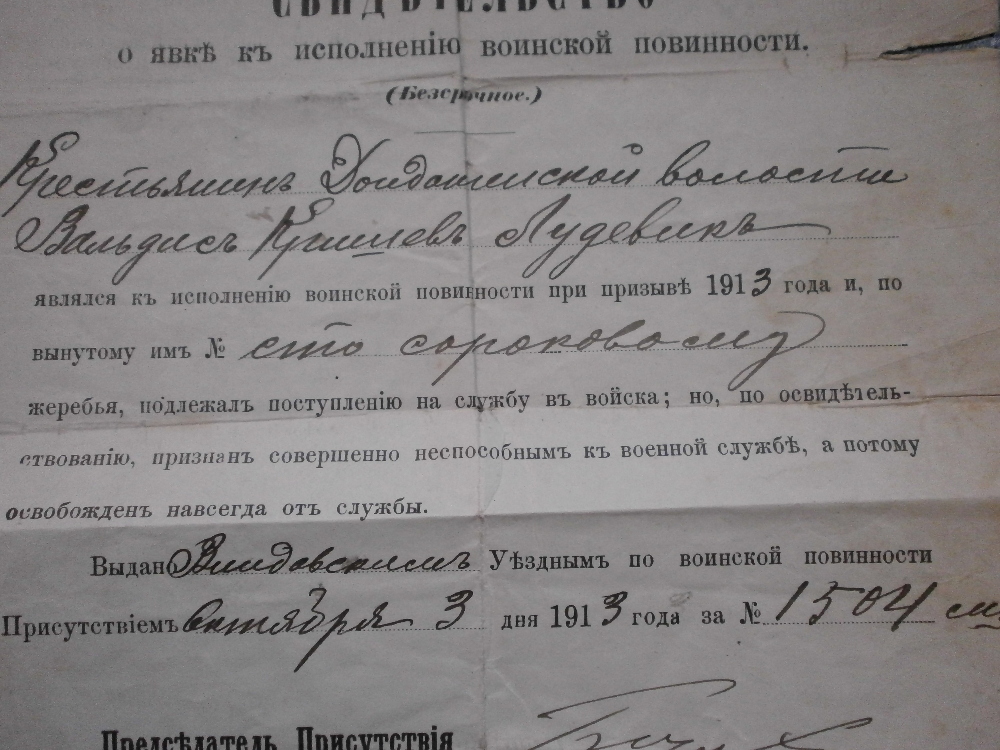 СВИДѢТЕЛЬСТВО
о явкѣ къ исполненію воинской повинности.
(Безсрочное.)
Крестьянинъ Дондангенской волости
Вальдисъ Кришевъ Лудевикъ
являлся къ исполненію воинской повинности при призывѣ 1913 года и, по
вынутому имъ № сто сороковому
жеребья, подлежалъ поступленію на службу въ войска; но, по освидѣтель-
ствованію, признанъ совершенно неспособнымъ къ военной службѣ, а потому
освобожденъ навсегда отъ службы.
Выдан Виндавскимъ Уѣзднымъ по воинской повинности
Присутствіемъ октября 3 дня 1913 года за № 1504
Предсѣдатель Присутствія